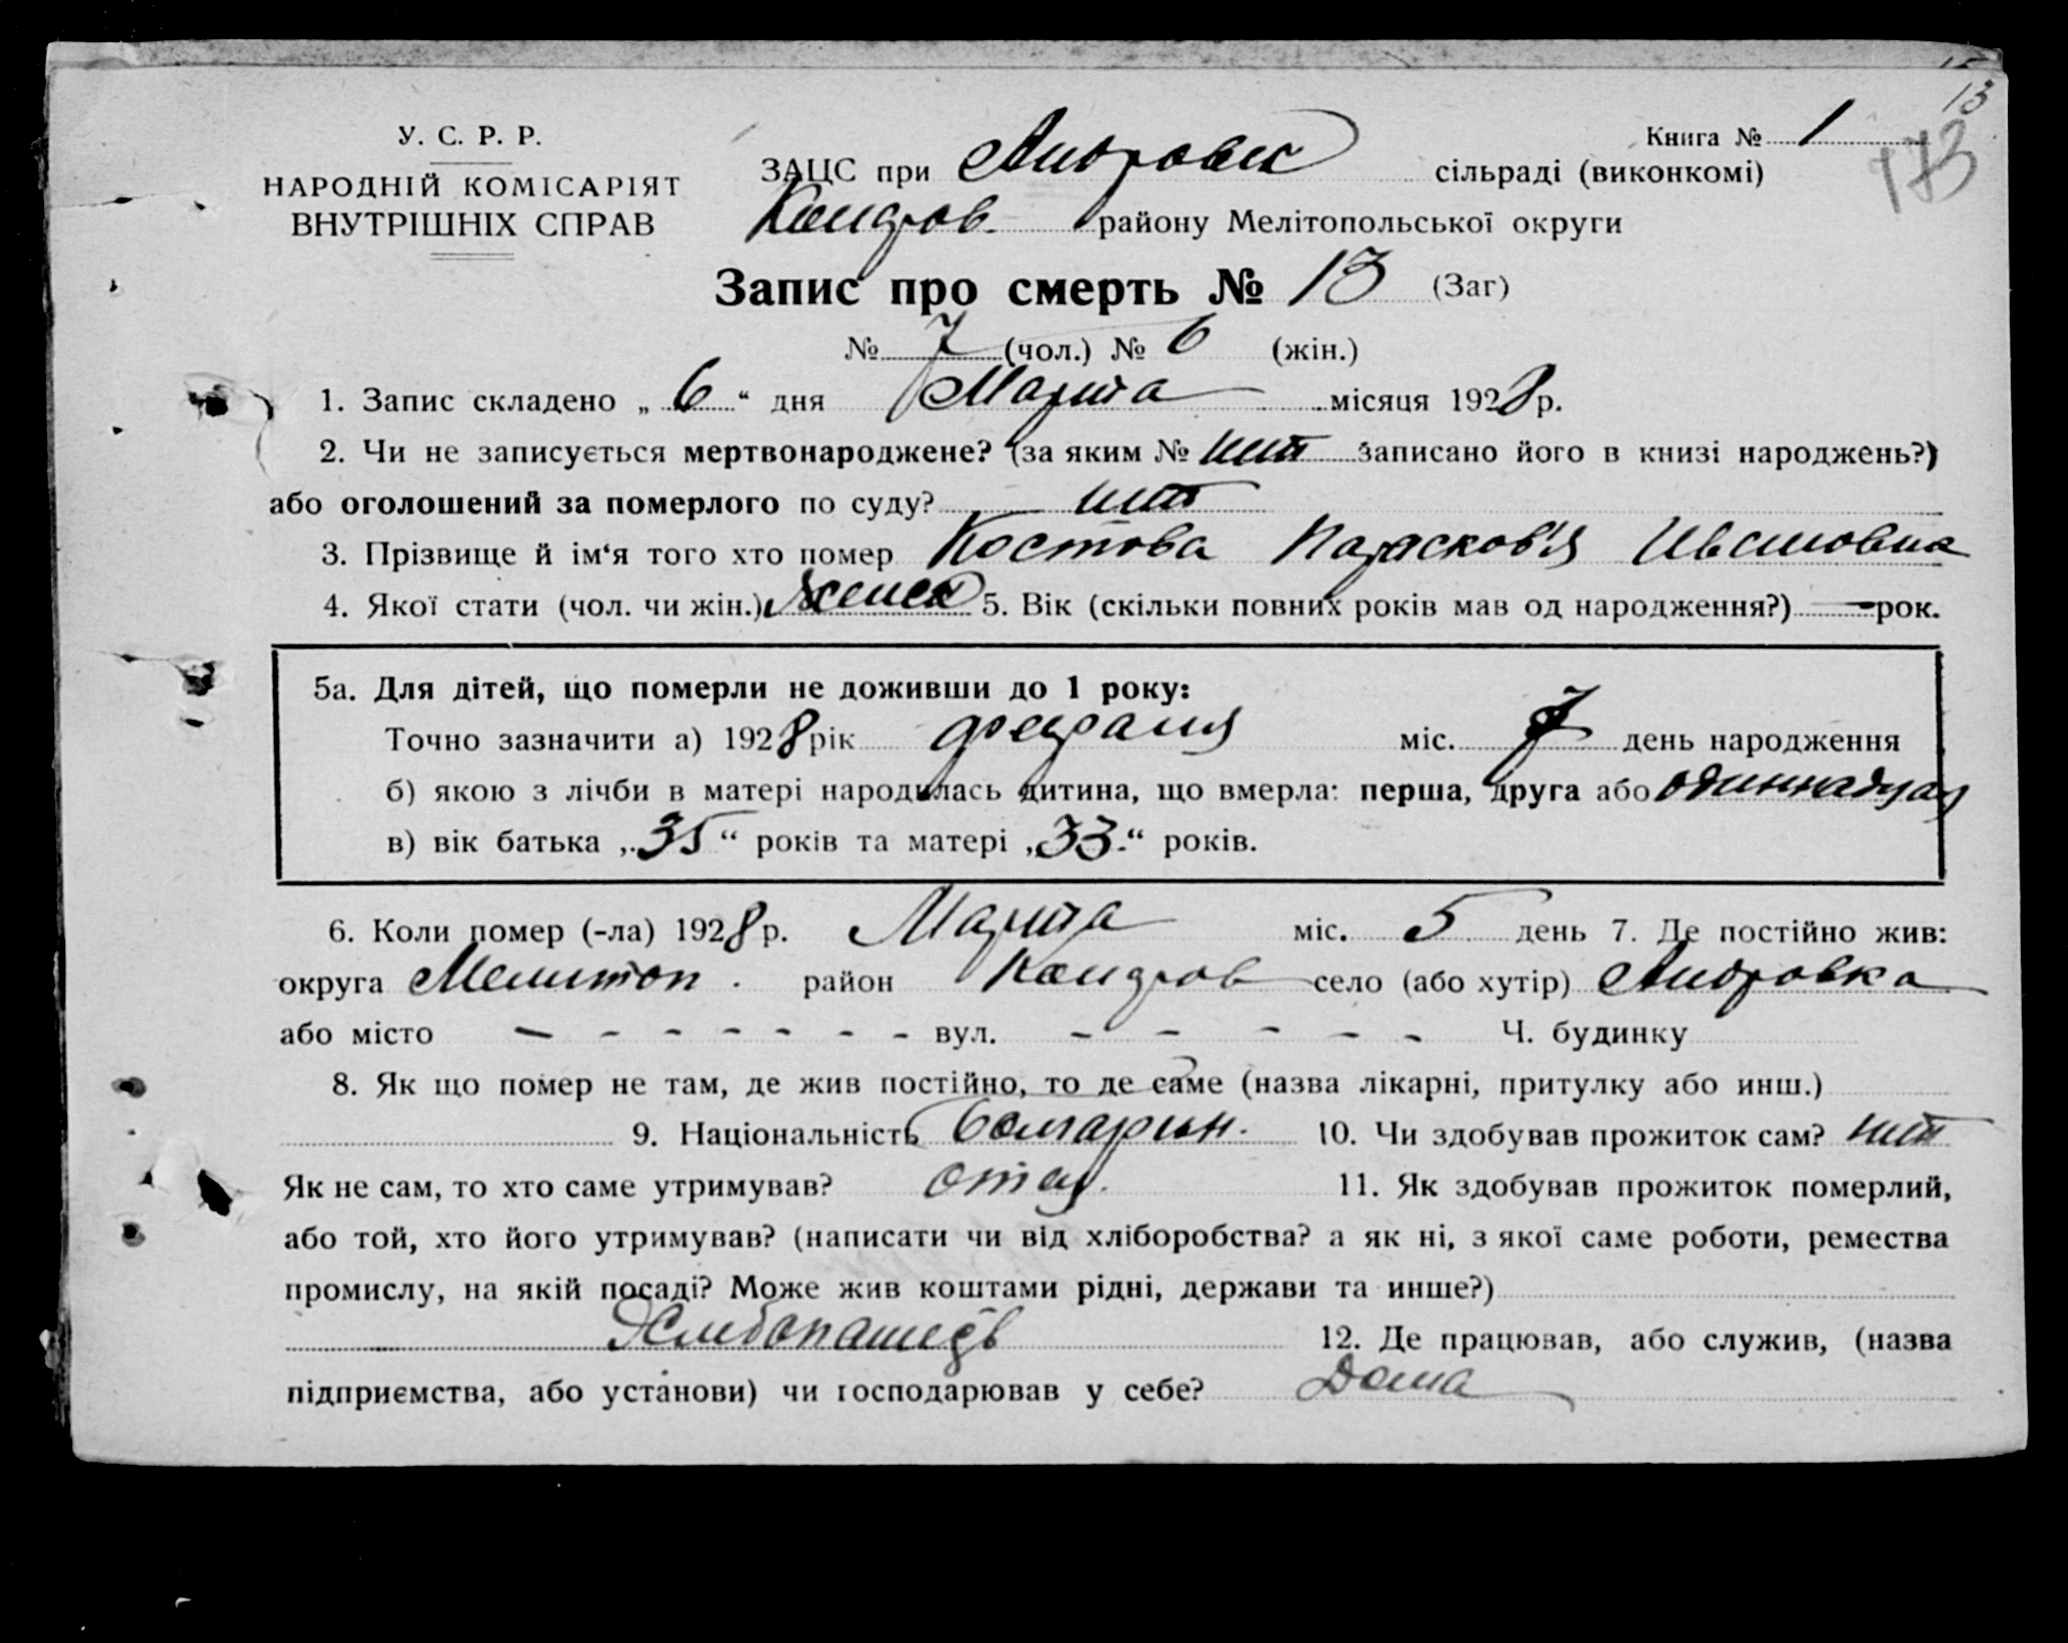 13
У. С. Р. Р.
НАРОДНІЙ КОМІСАРІЯТ
ВНУТРІШНІХ СПРАВ
Книга № 1
173
ЗАЦС при сільраді (виконкомі)
району Мелітопольської округи
Запис про смерть № 13 (Заг)
№ 7 (чол.) № 6 (жін.)
1. Запис складено „ 6 “ дня Марта місяця 1928 р.
2. Чи не записується мертвонароджене? (за яким № нит записано його в книзі народжень?)
або оголошений за померлого по суду? нит
3. Прізвище й ім‘я того хто помер Костова Парасков'я Ивановна
4. Якої стати (чол. чи жін.) женск 5. Вік (скільки повних років мав од народження?) — рок.
5а. Для дітей, що померли не доживши до 1 року:
Точно зазначити а) 1928 рік февраля міс. 7 день народження
б) якою з лічби в матері народилась дитина, що вмерла: перша, друга або одиннадцая
в) вік батька „ 35 “ років та матері „ 33 “ років.
6. Коли помер (-ла) 1928 р. Марта міс. 5 день 7. Де постійно жив:
округа Мелитоп. район село (або хутір)
або місто – – – – – – – вул. – – – – – Ч. будинку
8. Як що помер не там, де жив постійно, то де саме (назва лікарні, притулку або инш.)
9. Національність болгарин. 10. Чи здобував прожиток сам? нит
Як не сам, то хто саме утримував? отец. 11. Як здобував прожиток померлий,
або той, хто його утримував? (написати чи від хліборобства? а як ні, з якої саме роботи, ремества
промислу, на якій посаді? Може жив коштами рідні, держави та инше?)
12. Де працював, або служив, (назва
підприємства, або установи) чи господарював у себе? Дома